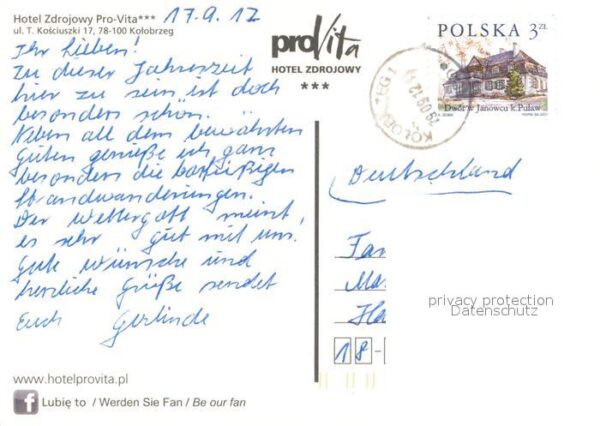 Hotel Zdrojowy Pro-Vita***
ul. T. Kościuszki 17, 78-100 Kołobrzeg
17.9.12
Ihr Lieben!
Zu dieser Jahreszeit
hier zu sein ist doch
besonders schön.
Neben all dem bewährten
Guten genieße ich ganz
besonders die barfüßigen
Strandwanderungen.
Der Wettergott meint
es sehr gut mit uns.
Gute Wünsche und
herzliche Grüße sendet
Euch Gerlinde
www.hotelprovita.pl
f Lubię to / Werden Sie Fan / Be our fan
proVita
HOTEL ZDROJOWY
***
POLSKA 3 ZŁ
Dwór w Janowcu k. Puław
KOŁOBRZEG 1
Deutschland
Fam
Ma
Ha
18-
privacy protection
Datenschutz